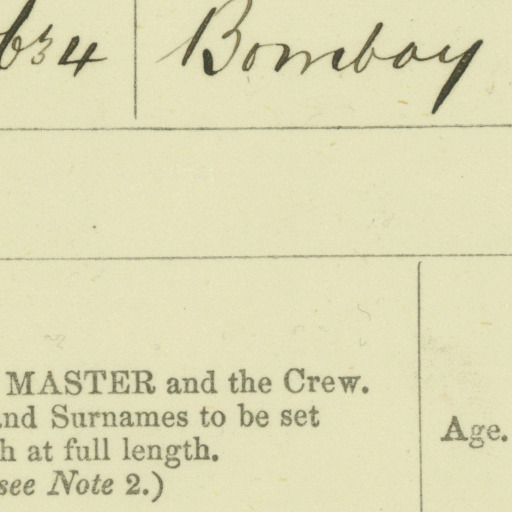 634 Bombay
MASTER and the Crew.
and Surnames to be set
h at full length.
see Note 2.)
Age.